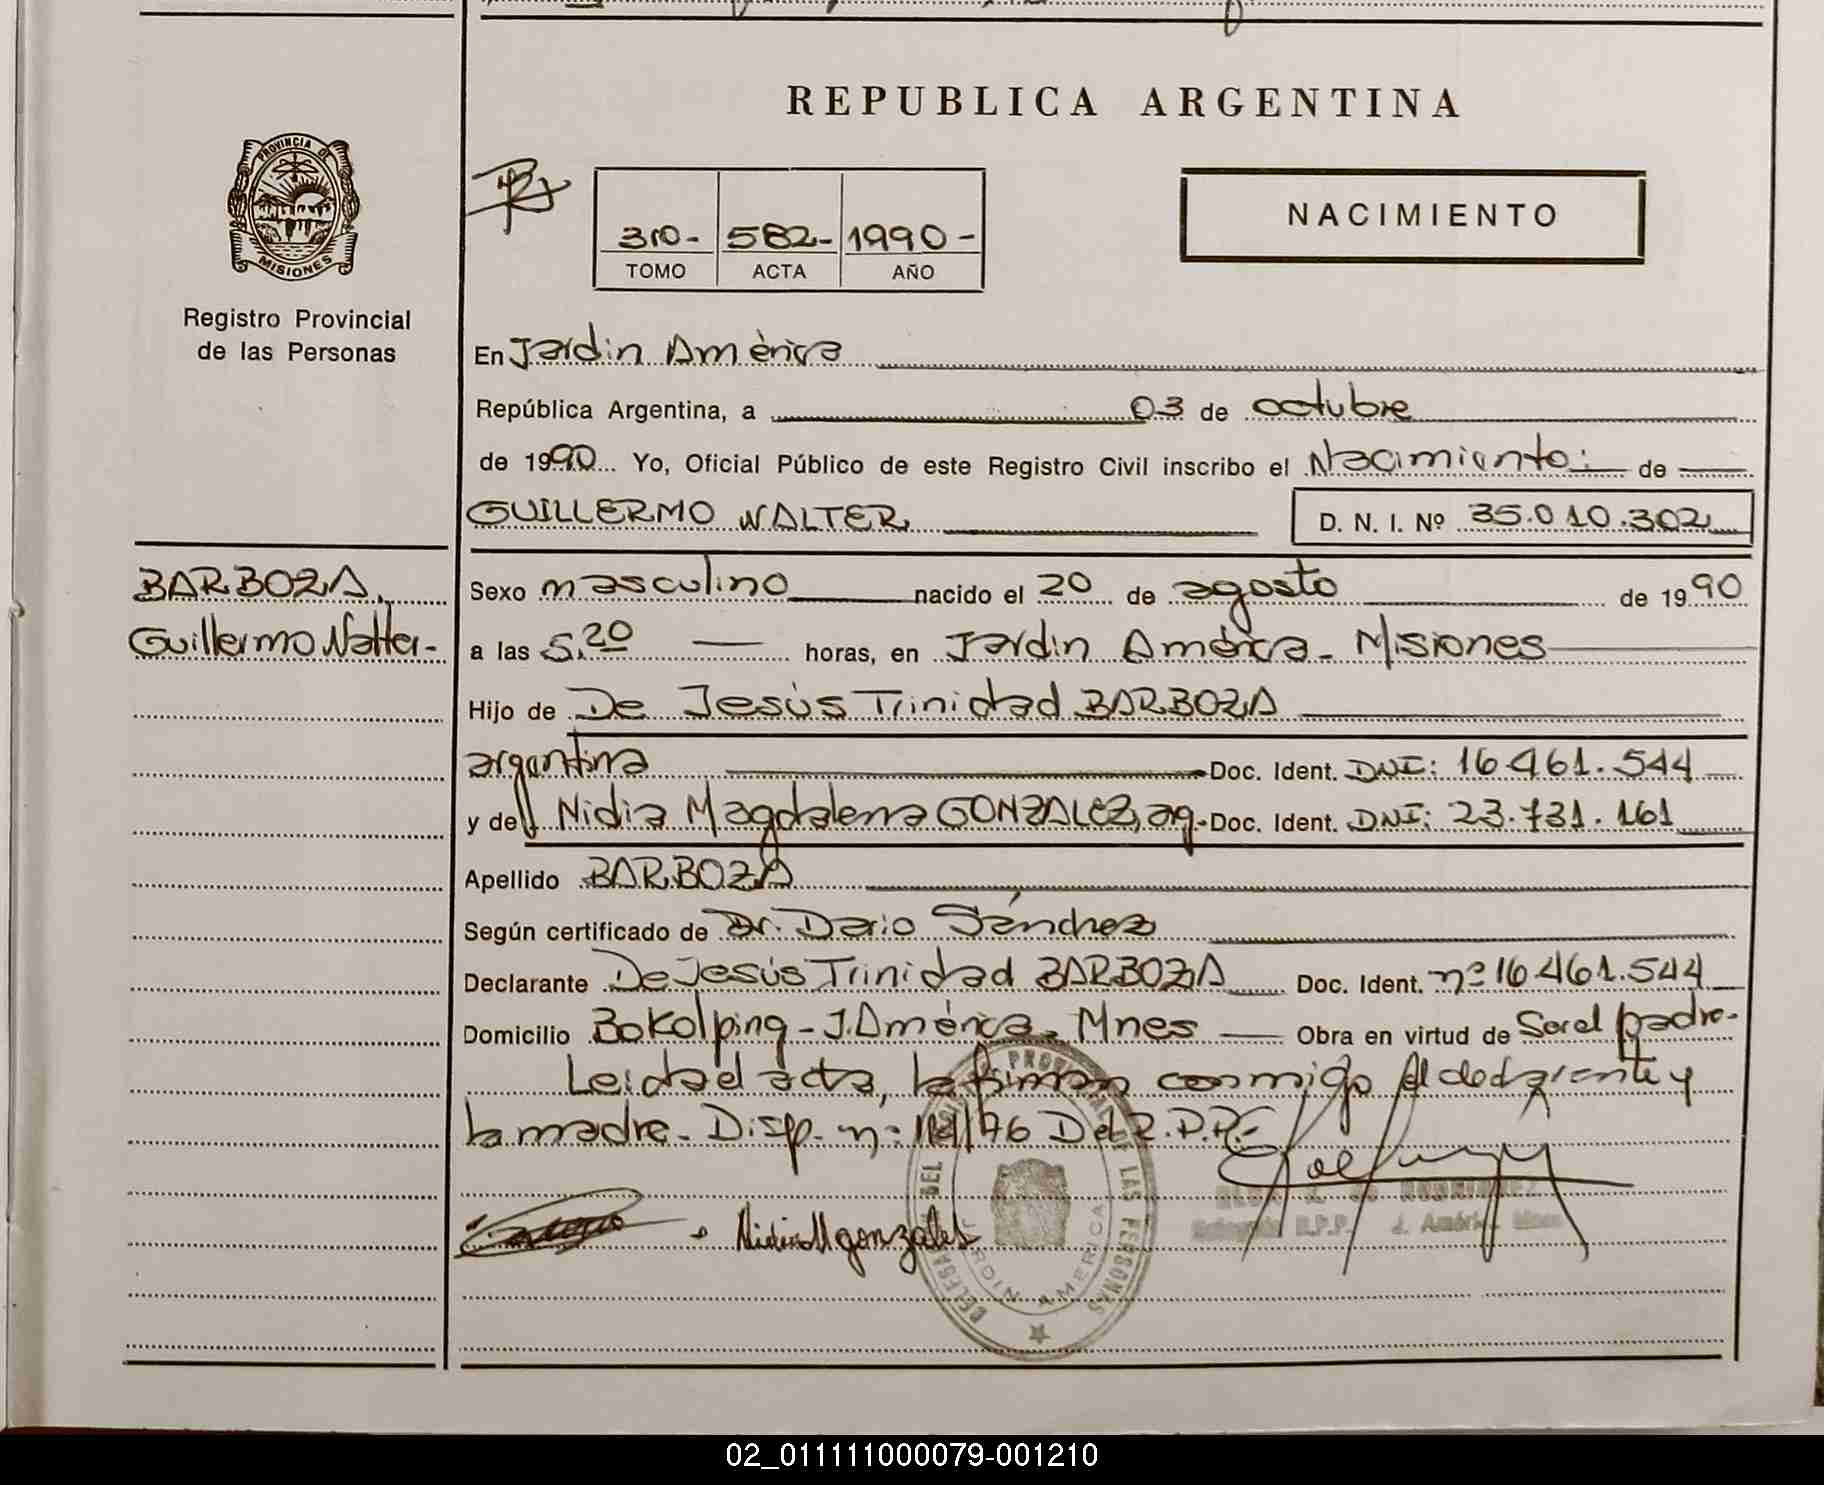 REPUBLICA ARGENTINA
PROVINCIA DE
MISIONES
Registro Provincial
de las Personas
310- 582- 1990-
TOMO ACTA AÑO
NACIMIENTO
En Jardin América
República Argentina, a 03 de octubre
de 1990 Yo, Oficial Público de este Registro Civil inscribo el Nacimiento: de
GUILLERMO WALTER D. N. I. Nº 35.010.302
BARBOZA,
Guillermo Walter-
Sexo masculino nacido el 20 de agosto de 1990
a las 5.20 horas, en Jardin América - Misiones
Hijo de De Jesús Trinidad BARBOZA
argentina Doc. Ident. DNI: 16.461.544
y de Nidia Magdalena GONZALEZ, arg.- Doc. Ident. DNI: 23.731.161
Apellido BARBOZA
Según certificado de Dr. Dario Sánchez
Declarante De Jesús Trinidad BARBOZA Doc. Ident. nº 16.461.544
Domicilio Bo Kolping - J. América - Mnes Obra en virtud de Ser el padre.-
Leida el acta, la firman conmigo el declarante y
la madre - Disp. nº 114/76 Del R.P.P.-
Nidia M gonzales
DELEGA DEL REGIS PROVINCIAL DE LAS PERSONAS
JARDIN AMERICA
RODRIGUEZ
R.P.P. J. América
02_011111000079-001210